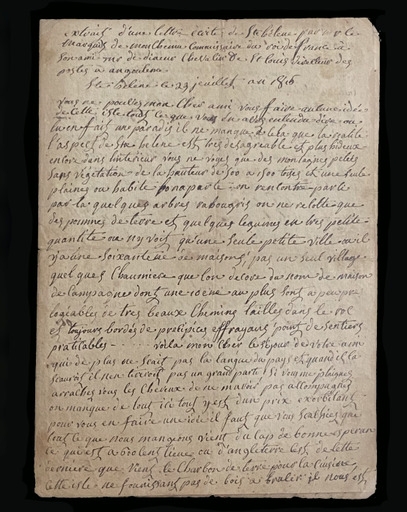 extrait d'une lettre écrite de Ste hélène par mr le
marquis de monchenu Commissaire du roi de france à
son ami mr de Chevalier de St louis directeur des
postes à angoulême
Ste hélène le 23 jeuillet an 1816
vous ne pouvés mon Cher ami vous faire aucune idée
de Cette isle tout ce que vous en avés entendu dire ou
lu en fait un paradis il ne manque à Cela que la réalité
l'aspect de Ste helene est très desagreable et plus hideux
encore dans l'intérieur vous ne voyés que des montagnes pelées
sans végétation de la hauteur de 500 à 800 toises et une seule
plaine ou habite bonaparte on rencontre par ci
par la quelques arbres rabougris on ne récolte que
des pommes de terre et quelques legumes en tres petite
quantité on n'y voit qu'une seule petite ville où il
y a une soixantaine de maisons, pas un seul village
quelques Chaumieres que l'on décore du nom de maison
de Campagne dont une 10ene au plus sont à peu près
logeables de tres beaux Chemins taillés dans le roc
et toujours bordés de précipices effrayans point de sentiers
pratitables - - - - - voila mon Cher le sejour de votre ami
qui de plus ne scait pas la langue du pays et quand il la
scauroit il n'en tireroit pas un grand parti
arrachés vous les Cheveux de ne m'avoir pas accompagné
on manque de tout ici tout y est d'un prix exorbitant
pour vous en faire une idée il faut que vous sachiés que
tout ce que nous mangeons vient du Cap de bonne esperance
ce qui est violent ou d'angleterre C'est de cette
derniere que vient le Charbon de terre pour la Cuisine
Cette isle ne fournissant pas de bois à bruler il nous est